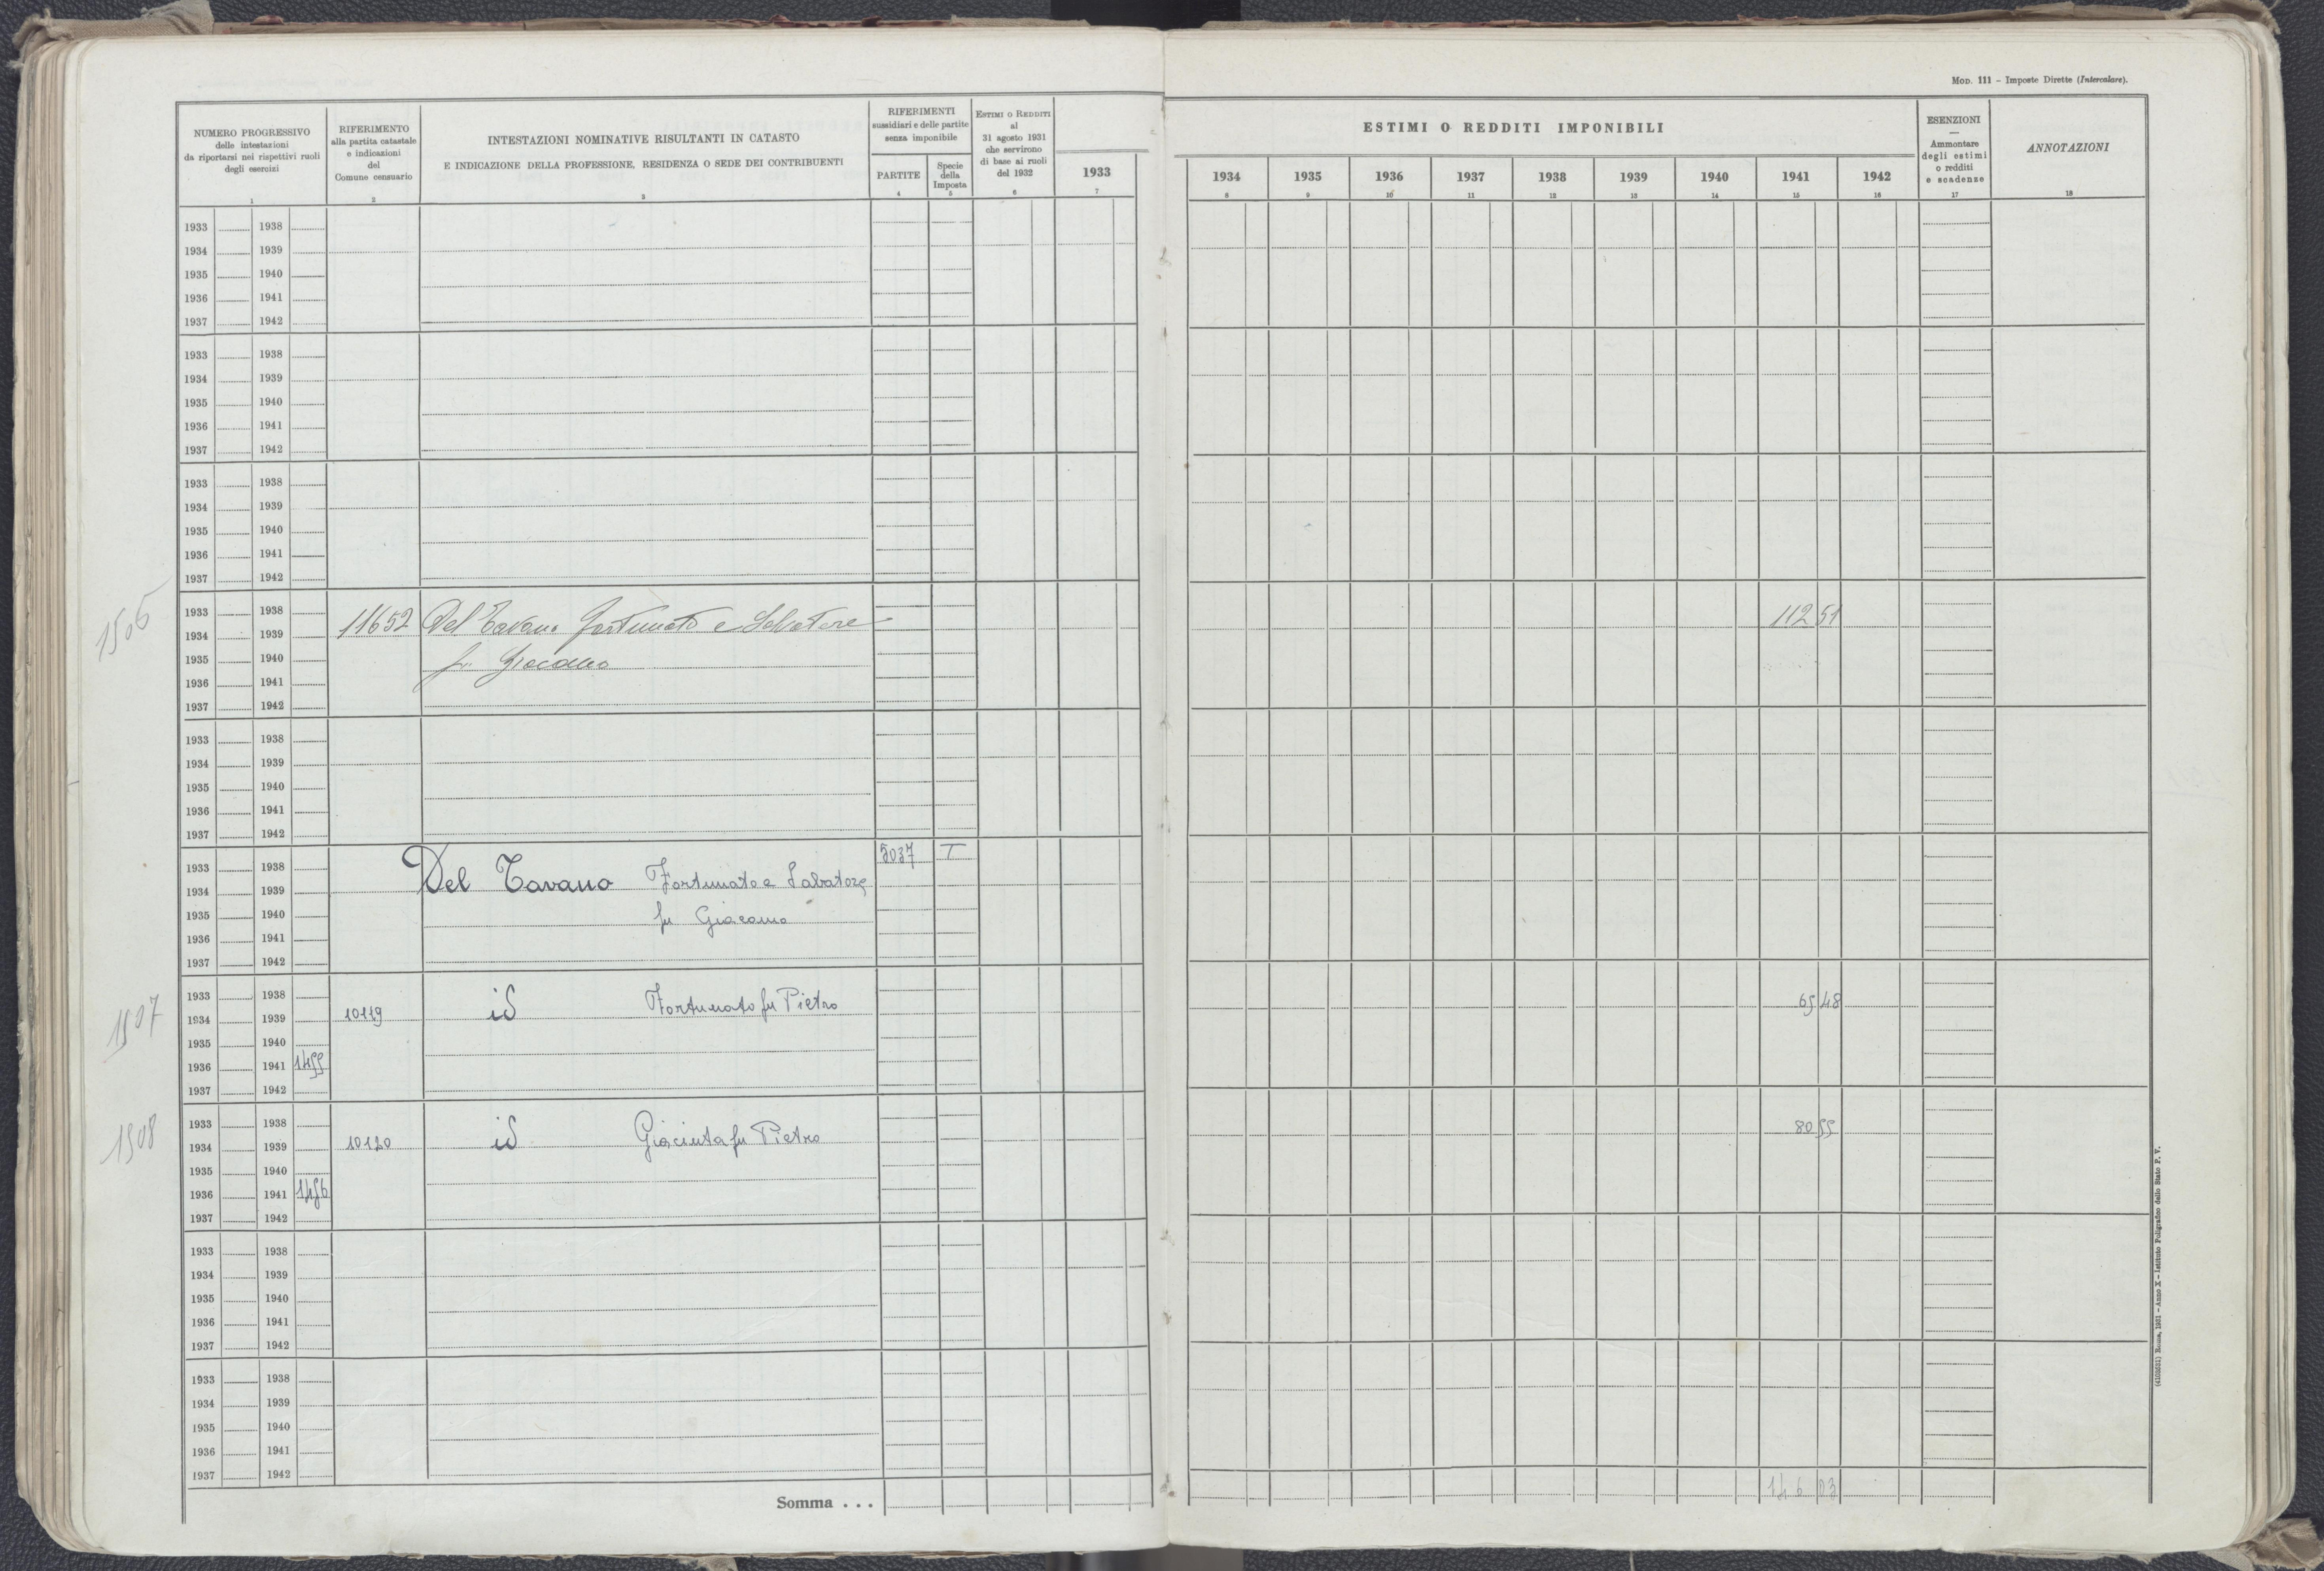 MOD. 111 – Imposte Dirette (Intercalare).
NUMERO PROGRESSIVO
delle intestazioni
da riportarsi nei rispettivi ruoli
degli esercizi
1
RIFERIMENTO
alla partita catastale
e indicazioni
del
Comune censuario
2
INTESTAZIONI NOMINATIVE RISULTANTI IN CATASTO
E INDICAZIONE DELLA PROFESSIONE, RESIDENZA O SEDE DEI CONTRIBUENTI
3
RIFERIMENTI
sussidiari e delle partite
senza imponibile
PARTITE
4
Specie
della
Imposta
5
ESTIMI O REDDITI
al
31 agosto 1931
che servirono
di base ai ruoli
del 1932
6
1933
7
ESTIMI O REDDITI IMPONIBILI
1934 1935 1936 1937 1938 1939 1940 1941 1942
8 9 10 11 12 13 14 15 16
ESENZIONI
—
Ammontare
degli estimi
o redditi
e scadenze
17
ANNOTAZIONI
18
1933 1938
1934 1939
1935 1940
1936 1941
1937 1942
1933 1938
1934 1939
1935 1940
1936 1941
1937 1942
1933 1938
1934 1939
1935 1940
1936 1941
1937 1942
1506
1933 1938
1934 1939 11652 Del Tavano Fortunato e Salvatore 112 51
1935 1940 fu Giacomo
1936 1941
1937 1942
1933 1938
1934 1939
1935 1940
1936 1941
1937 1942
1933 1938 5037 T
1934 1939 Del Tavano Fortunato e Salvatore
1935 1940 fu Giacomo
1936 1941
1937 1942
1507
1933 1938
1934 1939 10119 id Fortunato fu Pietro 65 48
1935 1940
1936 1941 1455
1937 1942
1508
1933 1938
1934 1939 10120 id Giacinta fu Pietro 80 55
1935 1940
1936 1941 1456
1937 1942
1933 1938
1934 1939
1935 1940
1936 1941
1937 1942
1933 1938
1934 1939
1935 1940
1936 1941
1937 1942
Somma . . . 146 03
(4103631) Roma, 1931 – Anno X – Istituto Poligrafico dello Stato P. V.